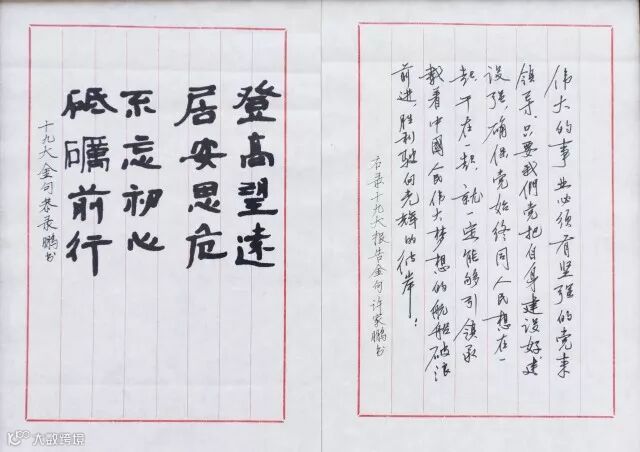 伟大的事业必须有坚强的党来
领导。只要我們党把自身建设好、建
设强，确保党始终同人民想在一
起、干在一起，就一定能够引领承
载着中國人民伟大梦想的航船破浪
前进，胜利驶向光辉的彼岸！
右录十九大报告金句许家鹏书
登高望遠
居安思危
不忘初心
砥礪前行
十九大金句恭录鹏书
大数跨境